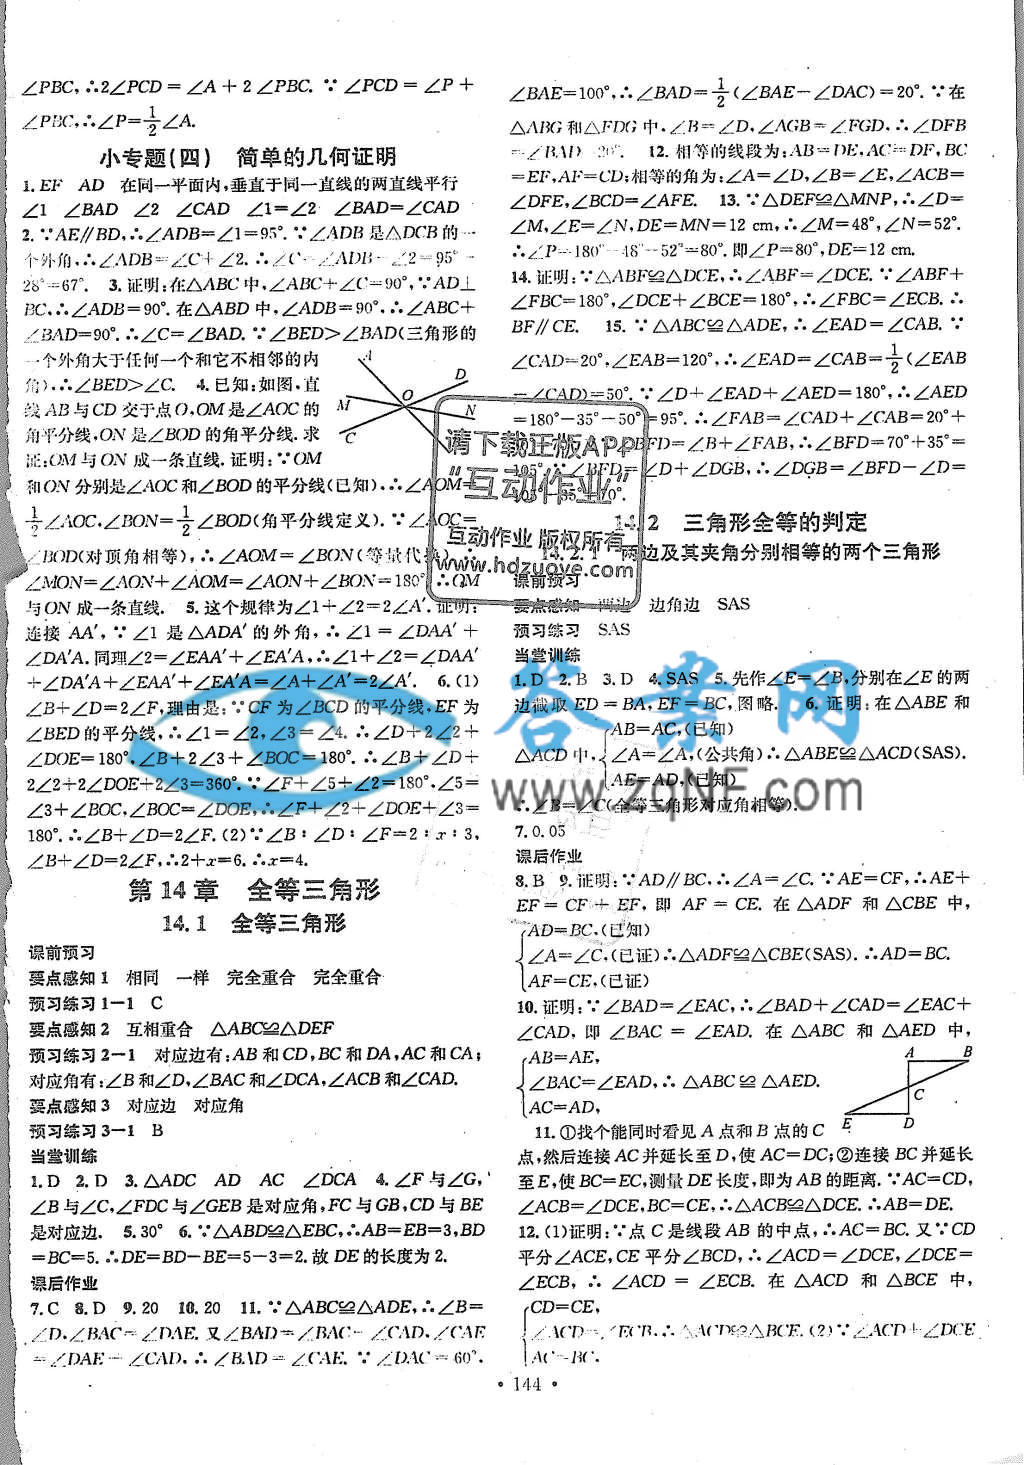 ∠PBC,∴2∠PCD=∠A+2∠PBC.∵∠PCD=∠P+
∠PBC,∴∠P=1/2∠A.
小专题(四) 简单的几何证明
1.EF AD 在同一平面内,垂直于同一直线的两直线平行
∠1 ∠BAD ∠2 ∠CAD ∠1=∠2 ∠BAD=∠CAD
2.∵AE∥BD,∴∠ADB=∠1=95°.∵∠ADB是△DCB的一
个外角,∴∠ADB=∠C+∠2.∴∠C=∠ADB-∠2=95°-
28°=67°. 3.证明:在△ABC中,∠ABC+∠C=90°,∵AD⊥
BC,∴∠ADB=90°.在△ABD中,∠ADB=90°.∴∠ABC+
∠BAD=90°.∴∠C=∠BAD.∵∠BED>∠BAD(三角形的
一个外角大于任何一个和它不相邻的内
角),∴∠BED>∠C. 4.已知:如图,直
线AB与CD交于点O,OM是∠AOC的
角平分线,ON是∠BOD的角平分线.求
证:OM与ON成一条直线.证明:∵OM
和ON分别是∠AOC和∠BOD的平分线(已知),∴∠AOM=
1/2∠AOC,∠BON=1/2∠BOD(角平分线定义).∵∠AOC=
∠BOD(对顶角相等),∴∠AOM=∠BON(等量代换).∴
∠MON=∠AON+∠AOM=∠AON+∠BON=180°.∴OM
与ON成一条直线. 5.这个规律为∠1+∠2=2∠A′.证明:
连接AA′,∵∠1是△ADA′的外角,∴∠1=∠DAA′+
∠DA′A.同理∠2=∠EAA′+∠EA′A,∴∠1+∠2=∠DAA′
+∠DA′A+∠EAA′+∠EA′A=∠A+∠A′=2∠A′. 6.(1)
∠B+∠D=2∠F,理由是:∵CF为∠BCD的平分线,EF为
∠BED的平分线,∴∠1=∠2,∠3=∠4.∴∠D+2∠2+
∠DOE=180°,∠B+2∠3+∠BOC=180°.∴∠B+∠D+
2∠2+2∠DOE+2∠3=360°.∵∠F+∠5+∠2=180°,∠5=
∠3+∠BOC,∠BOC=∠DOE,∴∠F+∠2+∠DOE+∠3=
180°.∴∠B+∠D=2∠F.(2)∵∠B∶∠D∶∠F=2∶x∶3,
∠B+∠D=2∠F,∴2+x=6.∴x=4.
第14章 全等三角形
14.1 全等三角形
课前预习
要点感知1 相同 一样 完全重合 完全重合
预习练习1-1 C
要点感知2 互相重合 △ABC≌△DEF
预习练习2-1 对应边有:AB和CD,BC和DA,AC和CA;
对应角有:∠B和∠D,∠BAC和∠DCA,∠ACB和∠CAD.
要点感知3 对应边 对应角
预习练习3-1 B
当堂训练
1.D 2.D 3.△ADC AD AC ∠DCA 4.∠F与∠G,
∠B与∠C,∠FDC与∠GEB是对应角,FC与GB,CD与BE
是对应边. 5.30° 6.∵△ABD≌△EBC,∴AB=EB=3,BD
=BC=5.∴DE=BD-BE=5-3=2.故DE的长度为2.
课后作业
7.C 8.D 9.20 10.20 11.∵△ABC≌△ADE,∴∠B=
∠D,∠BAC=∠DAE.又∠BAD=∠BAC-∠CAD,∠CAE
=∠DAE-∠CAD,∴∠BAD=∠CAE.∵∠DAC=60°.
∠BAE=100°,∴∠BAD=1/2(∠BAE-∠DAC)=20°.∵在
△ABG和△FDG中,∠B=∠D,∠AGB=∠FGD.∴∠DFB
=∠BAD=20°. 12.相等的线段为:AB=DE,AC=DF,BC
=EF,AF=CD;相等的角为:∠A=∠D,∠B=∠E,∠ACB=
∠DFE,∠BCD=∠AFE. 13.∵△DEF≌△MNP,∴∠D=
∠M,∠E=∠N,DE=MN=12 cm.∴∠M=48°,∠N=52°.
∴∠P=180°-48°-52°=80°.即∠P=80°,DE=12 cm.
14.证明:∵△ABF≌△DCE,∴∠ABF=∠DCE.∵∠ABF+
∠FBC=180°,∠DCE+∠BCE=180°,∴∠FBC=∠ECB.∴
BF∥CE. 15.∵△ABC≌△ADE,∴∠EAD=∠CAB.∵
∠CAD=20°,∠EAB=120°,∴∠EAD=∠CAB=1/2(∠EAB
-∠CAD)=50°.∵∠D+∠EAD+∠AED=180°,∴∠AED
=180°-35°-50°=95°.∴∠FAB=∠CAD+∠CAB=20°+
BFD=∠B+∠FAB,∴∠BFD=70°+35°=
105°.∵∠BFD=∠D+∠DGB,∴∠DGB=∠BFD-∠D=
105°-35°=70°.
14.2 三角形全等的判定
14.2.1 两边及其夹角分别相等的两个三角形
课前预习
要点感知 两边 边角边 SAS
预习练习 SAS
当堂训练
1.D 2.B 3.D 4.SAS 5.先作∠E=∠B,分别在∠E的两
边截取ED=BA,EF=BC,图略. 6.证明:在△ABE和
△ACD中,{AB=AC,(已知)
∠A=∠A,(公共角)∴△ABE≌△ACD(SAS).
AE=AD,(已知)
∴∠B=∠C(全等三角形对应角相等).
7.0.05
课后作业
8.B 9.证明:∵AD∥BC,∴∠A=∠C.∵AE=CF,∴AE+
EF=CF+EF,即AF=CE.在△ADF和△CBE中,
{AD=BC,(已知)
∠A=∠C,(已证)∴△ADF≌△CBE(SAS).∴AD=BC.
AF=CE,(已证)
10.证明:∵∠BAD=∠EAC,∴∠BAD+∠CAD=∠EAC+
∠CAD,即∠BAC=∠EAD.在△ABC和△AED中,
{AB=AE,
∠BAC=∠EAD,∴△ABC≌△AED.
AC=AD,
11.①找个能同时看见A点和B点的C
点,然后连接AC并延长至D,使AC=DC;②连接BC并延长
至E,使BC=EC,测量DE长度,即为AB的距离.∵AC=CD,
∠ACB=∠DCE,BC=CE,∴△ACB≌△DCE.∴AB=DE.
12.(1)证明:∵点C是线段AB的中点,∴AC=BC.又∵CD
平分∠ACE,CE平分∠BCD,∴∠ACD=∠DCE,∠DCE=
∠ECB,∴∠ACD=∠ECB.在△ACD和△BCE中,
{CD=CE,
∠ACD=∠ECB,∴△ACD≌△BCE.(2)∵∠ACD+∠DCE
AC=BC.
A
O
D
M
N
C
A B
C
E D
请下载正版APP
“互动作业”
互动作业 版权所有
www.hdzuoye.com
答案网
www.zqnf.com
· 144 ·